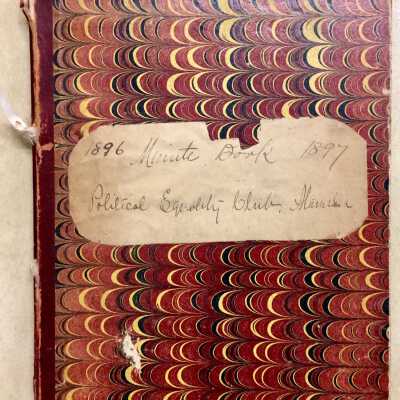 1896 Minute Book 1897
Political Equality Club, Alameda